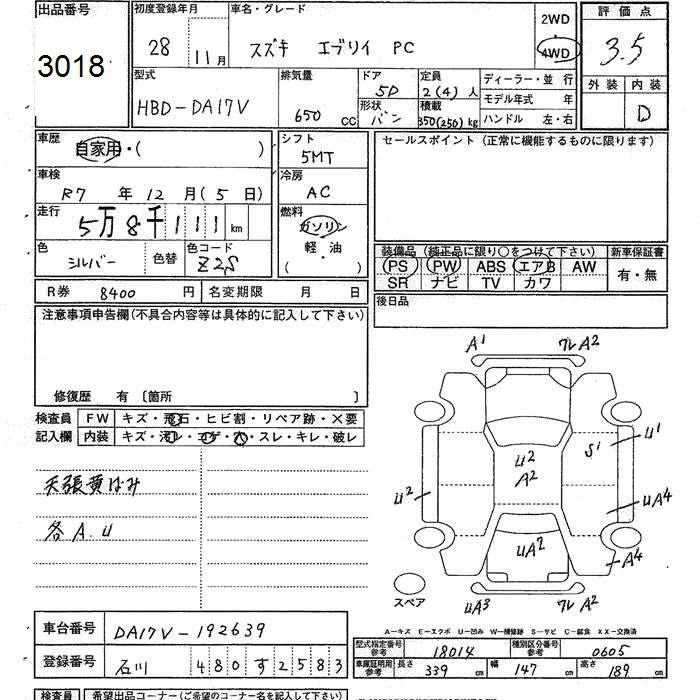 出品番号
3018
初度登録年月
28 11月
車名・グレード
スズキ エブリイ PC
2WD
4WD
評価点
3.5
外装 内装
D
型式
HBD-DA17V
排気量
650 CC
ドア
5D
形状
バン
定員
2(4)人
積載
350(250)kg
ディーラー・並 行
モデル年式 年
ハンドル 左・右
車歴
自家用・( )
車検
R7 年 12 月(5 日)
走行
5万8千111km
色
シルバー
色替
色コード
Z2S
シフト
5MT
冷房
AC
燃料
ガソリン
軽・油
( )
セールスポイント(正常に機能するものに限ります)
装備品(純正品に限り○をつけて下さい)
PS PW ABS エアB AW
SR ナビ TV カワ
新車保証書
有・無
R券 8400 円
名変期限 月 日
後日品
注意事項申告欄(不具合内容等は具体的に記入して下さい)
修復歴 有 〔箇所 〕
検査員
記入欄
FW キズ・飛石・ヒビ割・リペア跡・X要
内装 キズ・汚レ・コゲ・穴・スレ・キレ・破レ
天張黄ばみ
各A.U
A1 ワレA2
U1
S1
U2
A2
U2
UA4
UA2
A4
UA3 ワレA2
スペア
A-キズ E-エクボ U-凹み W-補修跡 S-サビ C-腐食 XX-交換済
車台番号 DA17V-192639
登録番号 石川 480す2583
型式指定番号
参考
18014
種別区分番号
参考
0605
車庫証明用
参考
長さ 339cm
幅 147cm
高さ 189cm
検査員
希望出品コーナー(ご希望のコーナー名を記入して下さい)